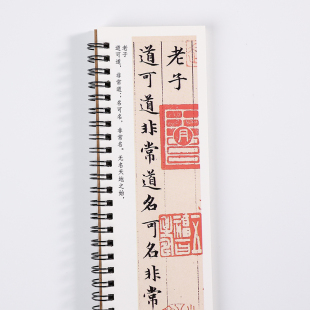 老子
道可道非常道名可名非常
老子
道可道，非常道；名可名，非常名。无名天地之始，